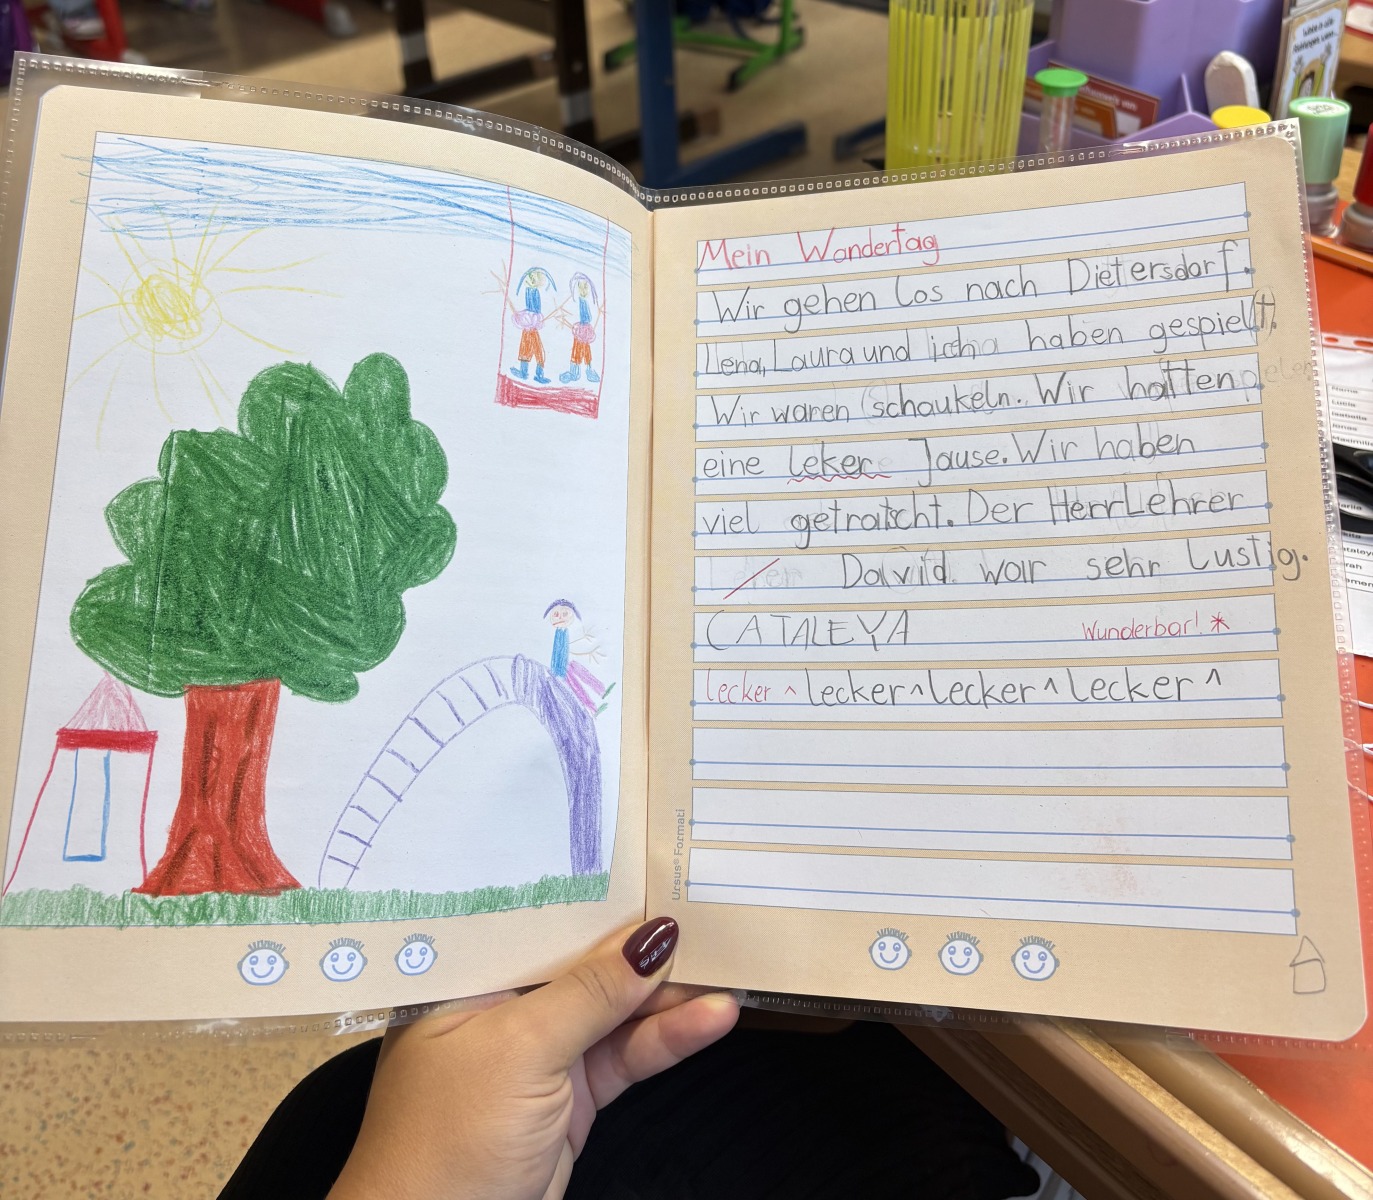 Mein Wandertag
Wir gehen los nach Dietersdorf.
Lena, Laura und ich haben gespielt.
Wir waren schaukeln. Wir hatten
eine leker Jause. Wir haben
viel getratscht. Der Herr Lehrer
David war sehr Lustig.
CATALEYA Wunderbar! *
lecker ^ lecker ^ lecker ^ lecker ^
Ursus® Formati